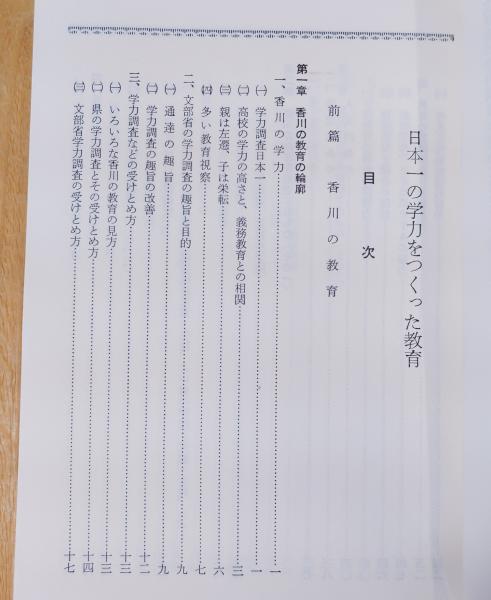 日本一の学力をつくった教育
目次
前篇 香川の教育
第一章 香川の教育の輪廓
一、香川の学力……一
㈠ 学力調査日本一……一
㈡ 高校の学力の高さと、義務教育との相関……三
㈢ 親は左遷、子は栄転……六
㈣ 多い教育視察……七
二、文部省の学力調査の趣旨と目的……九
㈠ 通達の趣旨……九
㈡ 学力調査の趣旨の改善……十二
三、学力調査などの受けとめ方……十三
㈠ いろいろな香川の教育の見方……十三
㈡ 県の学力調査とその受けとめ方……十四
㈢ 文部省学力調査の受けとめ方……十七